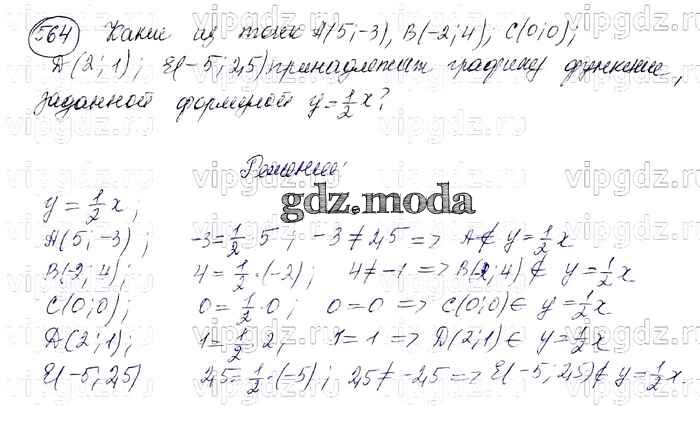 564 Какие из точек A(5;-3), B(-2;4); C(0;0);
D(2;1); E(-5;2,5) принадлежит графику функции,
заданной формулой y=1/2x?
Решение:
gdz.moda
y=1/2x;
A(5;-3); -3=1/2·5; -3≠2,5=> A∉ y=1/2x
B(-2;4); 4=1/2·(-2); 4≠-1=> B(-2;4)∉ y=1/2x
C(0;0); 0=1/2·0; 0=0=> C(0;0)∈ y=1/2x
D(2;1); 1=1/2·2; 1=1=> D(2;1)∈ y=1/2x
E(-5;2,5) 2,5=1/2·(-5); 2,5≠-2,5=> E(-5;2,5)∉ y=1/2x.
vipgdz.ru